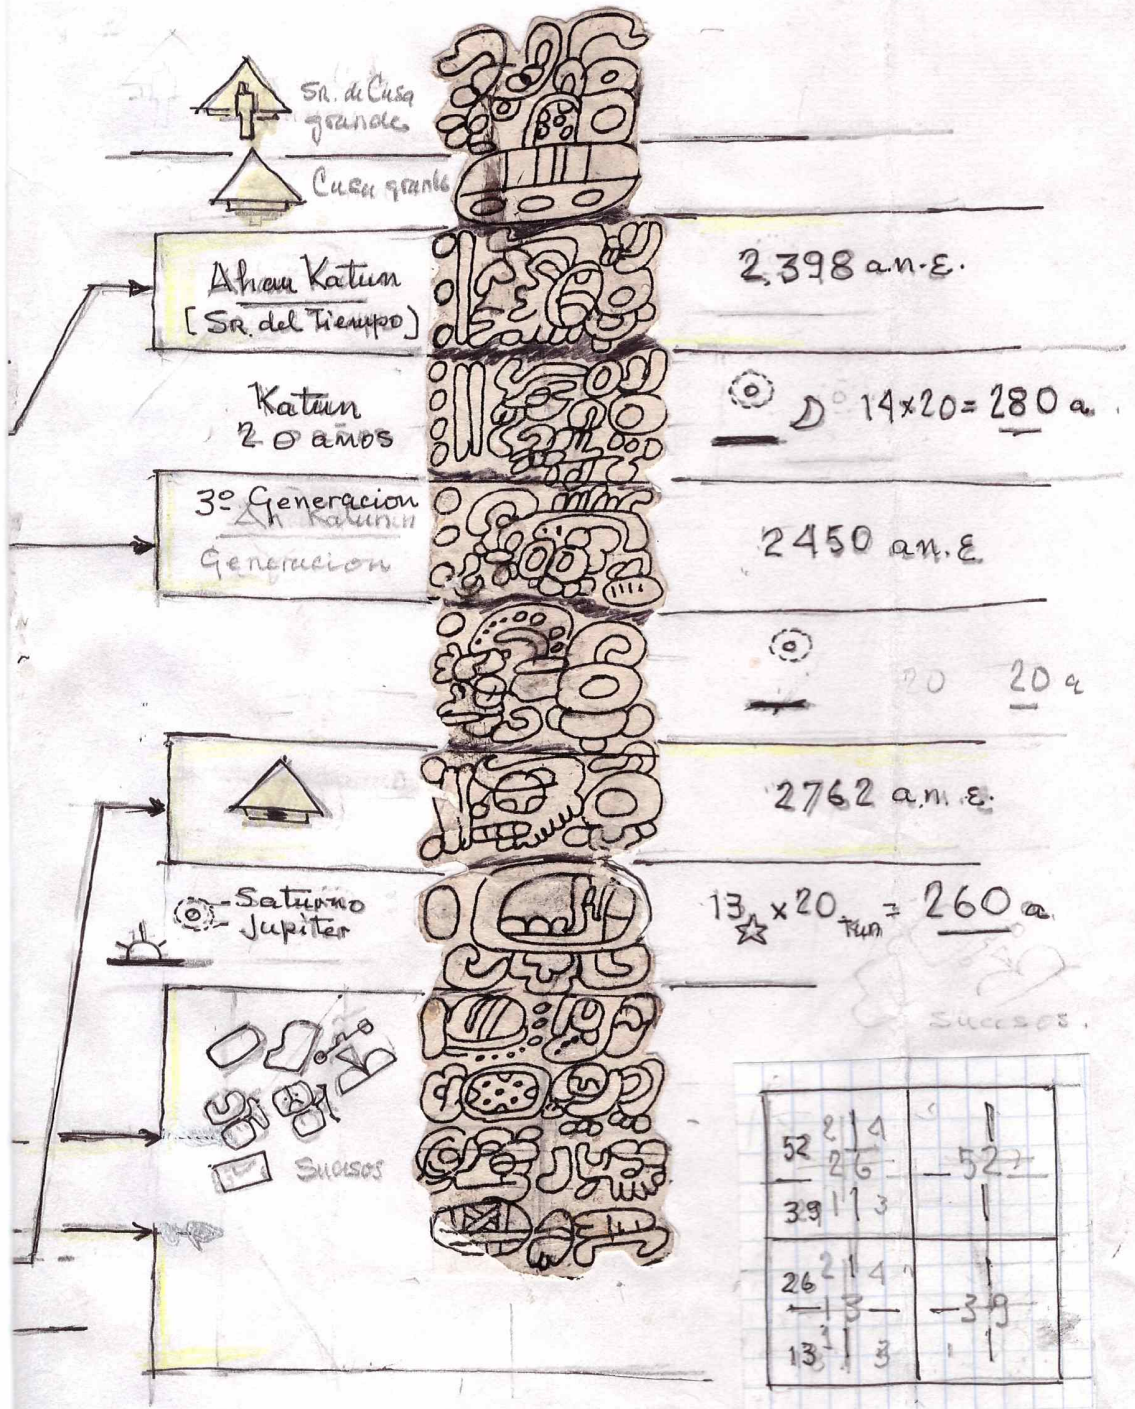 Sr. de Casa
grande
Casa grande
Ahau Katun
[Sr. del Tiempo]
2,398 a.n.E.
Katun
20 años
14x20=280 a.
3º Generacion
Ah Katunin
Generacion
2450 a.n.E
20 20 a
2762 a.n.E.
Saturno
Jupiter
13 x 20 Tun = 260 a
Sucesos.
Sucesos
52 2 1 4
26
39 1 1 3
1
52
1
26 2 1 4
13
13 1 3
1
39
1